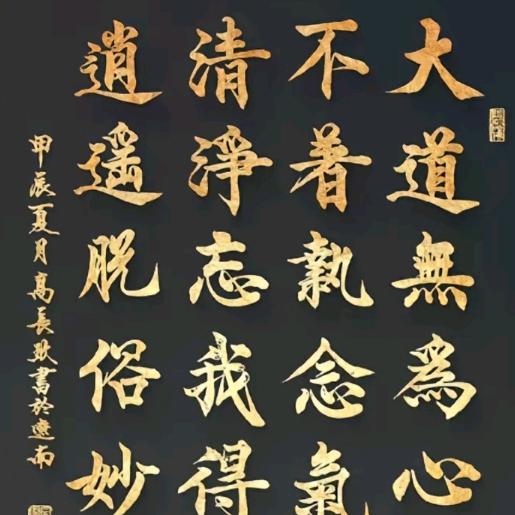 大道無為心
不着執念氣
清淨忘我得
逍遥脱俗妙
甲辰夏月高長欣書於遼南